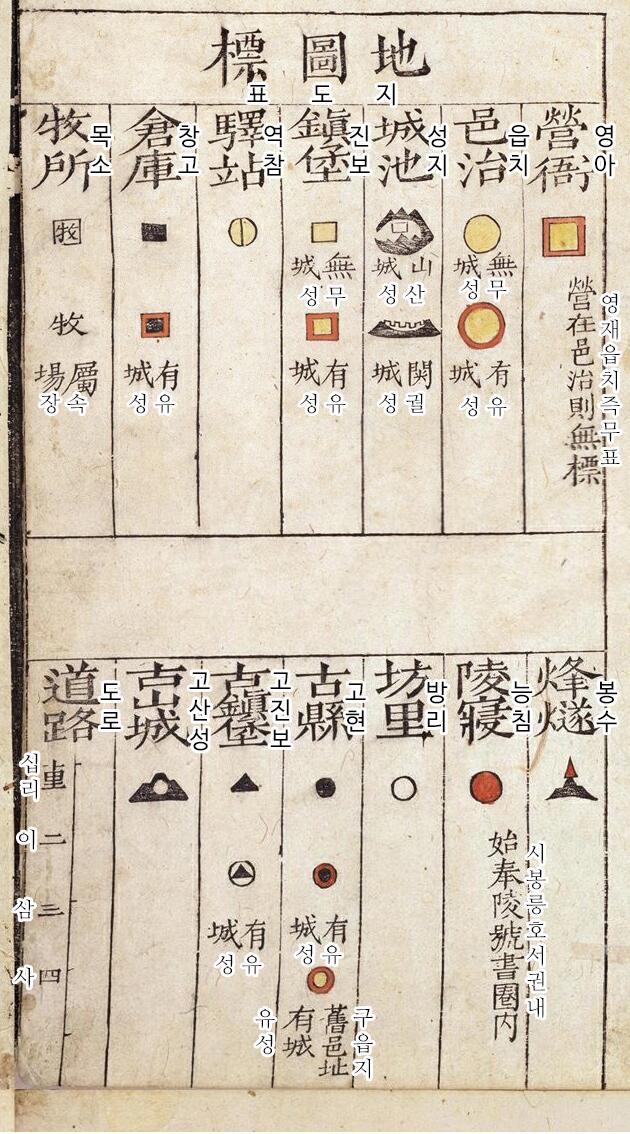 地圖標
지도표
營衙
영아
營在邑治則無標
영재읍치즉무표
邑治
읍치
無城
무성
有城
유성
城池
성지
山城
산성
関城
궐성
鎭堡
진보
無城
무성
有城
유성
驛站
역참
倉庫
창고
有城
유성
牧所
목소
牧
牧
屬場
속장
烽燧
봉수
陵寢
능침
始奉陵號書圈內
시봉릉호서권내
坊里
방리
古縣
고현
有城
유성
舊邑址
구읍지
有城
유성
古鎭堡
고진보
有城
유성
古山城
고산성
道路
도로
십리
二
이
三
삼
四
사